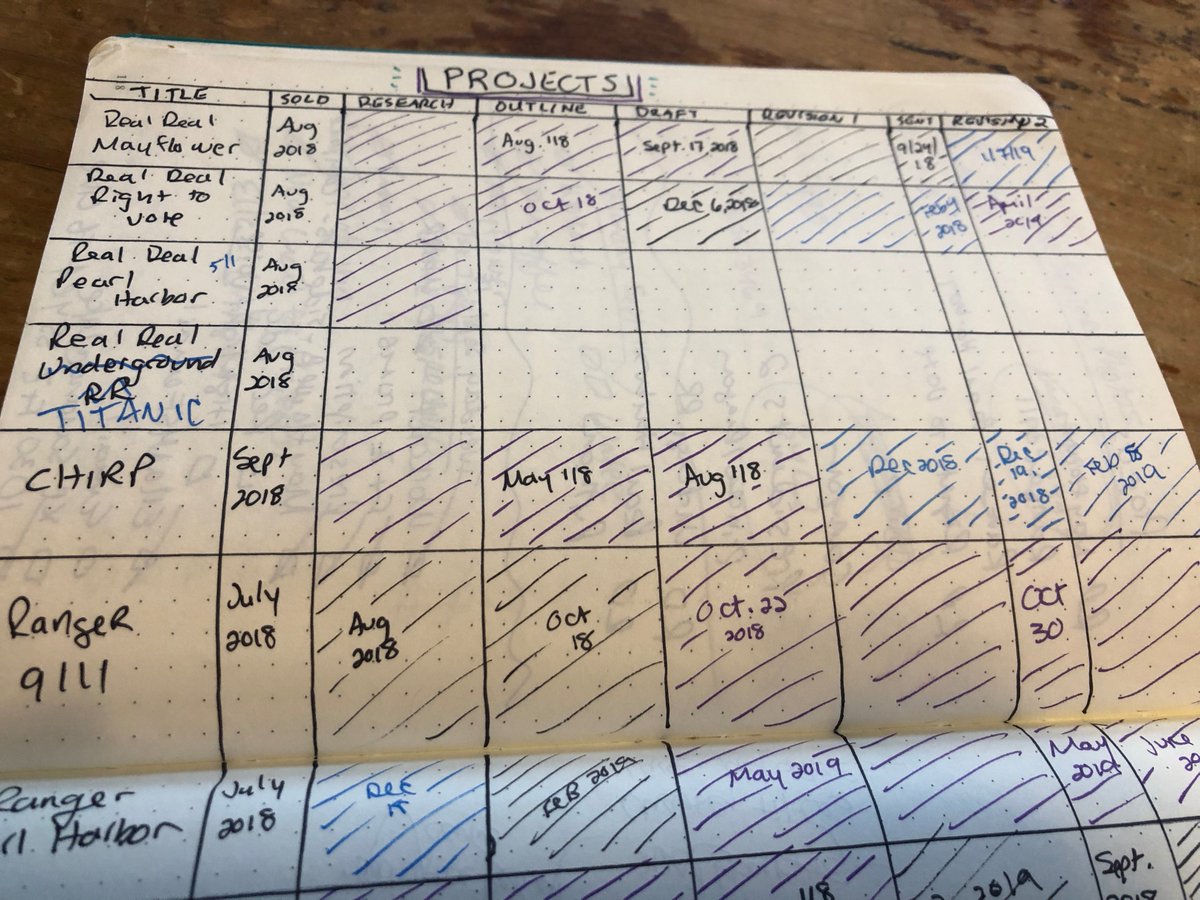 PROJECTS
TITLE SOLD RESEARCH OUTLINE DRAFT REVISION 1 SENT REVISION 2
Real Real
Mayflower
Aug
2018
Aug '18
Sept. 17, 2018
9/24/
18
1/7/19
Real Deal
Right to
vote
Aug
2018
Oct 18
Dec 6, 2018
2018
April
2019
Real Deal
5/1
Pearl
Harbor
Aug
2018
Real Real
Underground
RR
TITANIC
Aug
2018
CHIRP
Sept
2018
May '18
Aug '18
Dec 2018
Dec
19,
2018
Feb 8
2019
Ranger
9/11
July
2018
Aug
2018
Oct
18
Oct. 22
2018
Oct
30
Ranger
rl Harbor
July
2018
Dec
Feb 2019
May 2019
May
2019
June
20
'18
2019
Sept.
2018